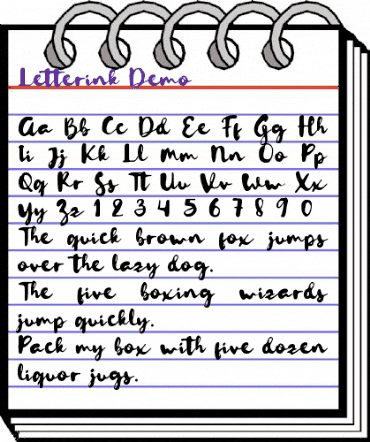 Letterink Demo
Aa Bb Cc Dd Ee Ff Gg Hh
Ii Jj Kk Ll Mm Nn Oo Pp
Qq Rr Ss Tt Uu Vv Ww Xx
Yy Zz 1 2 3 4 5 6 7 8 9 0
The quick brown fox jumps
over the lazy dog.
The five boxing wizards
jump quickly.
Pack my box with five dozen
liquor jugs.